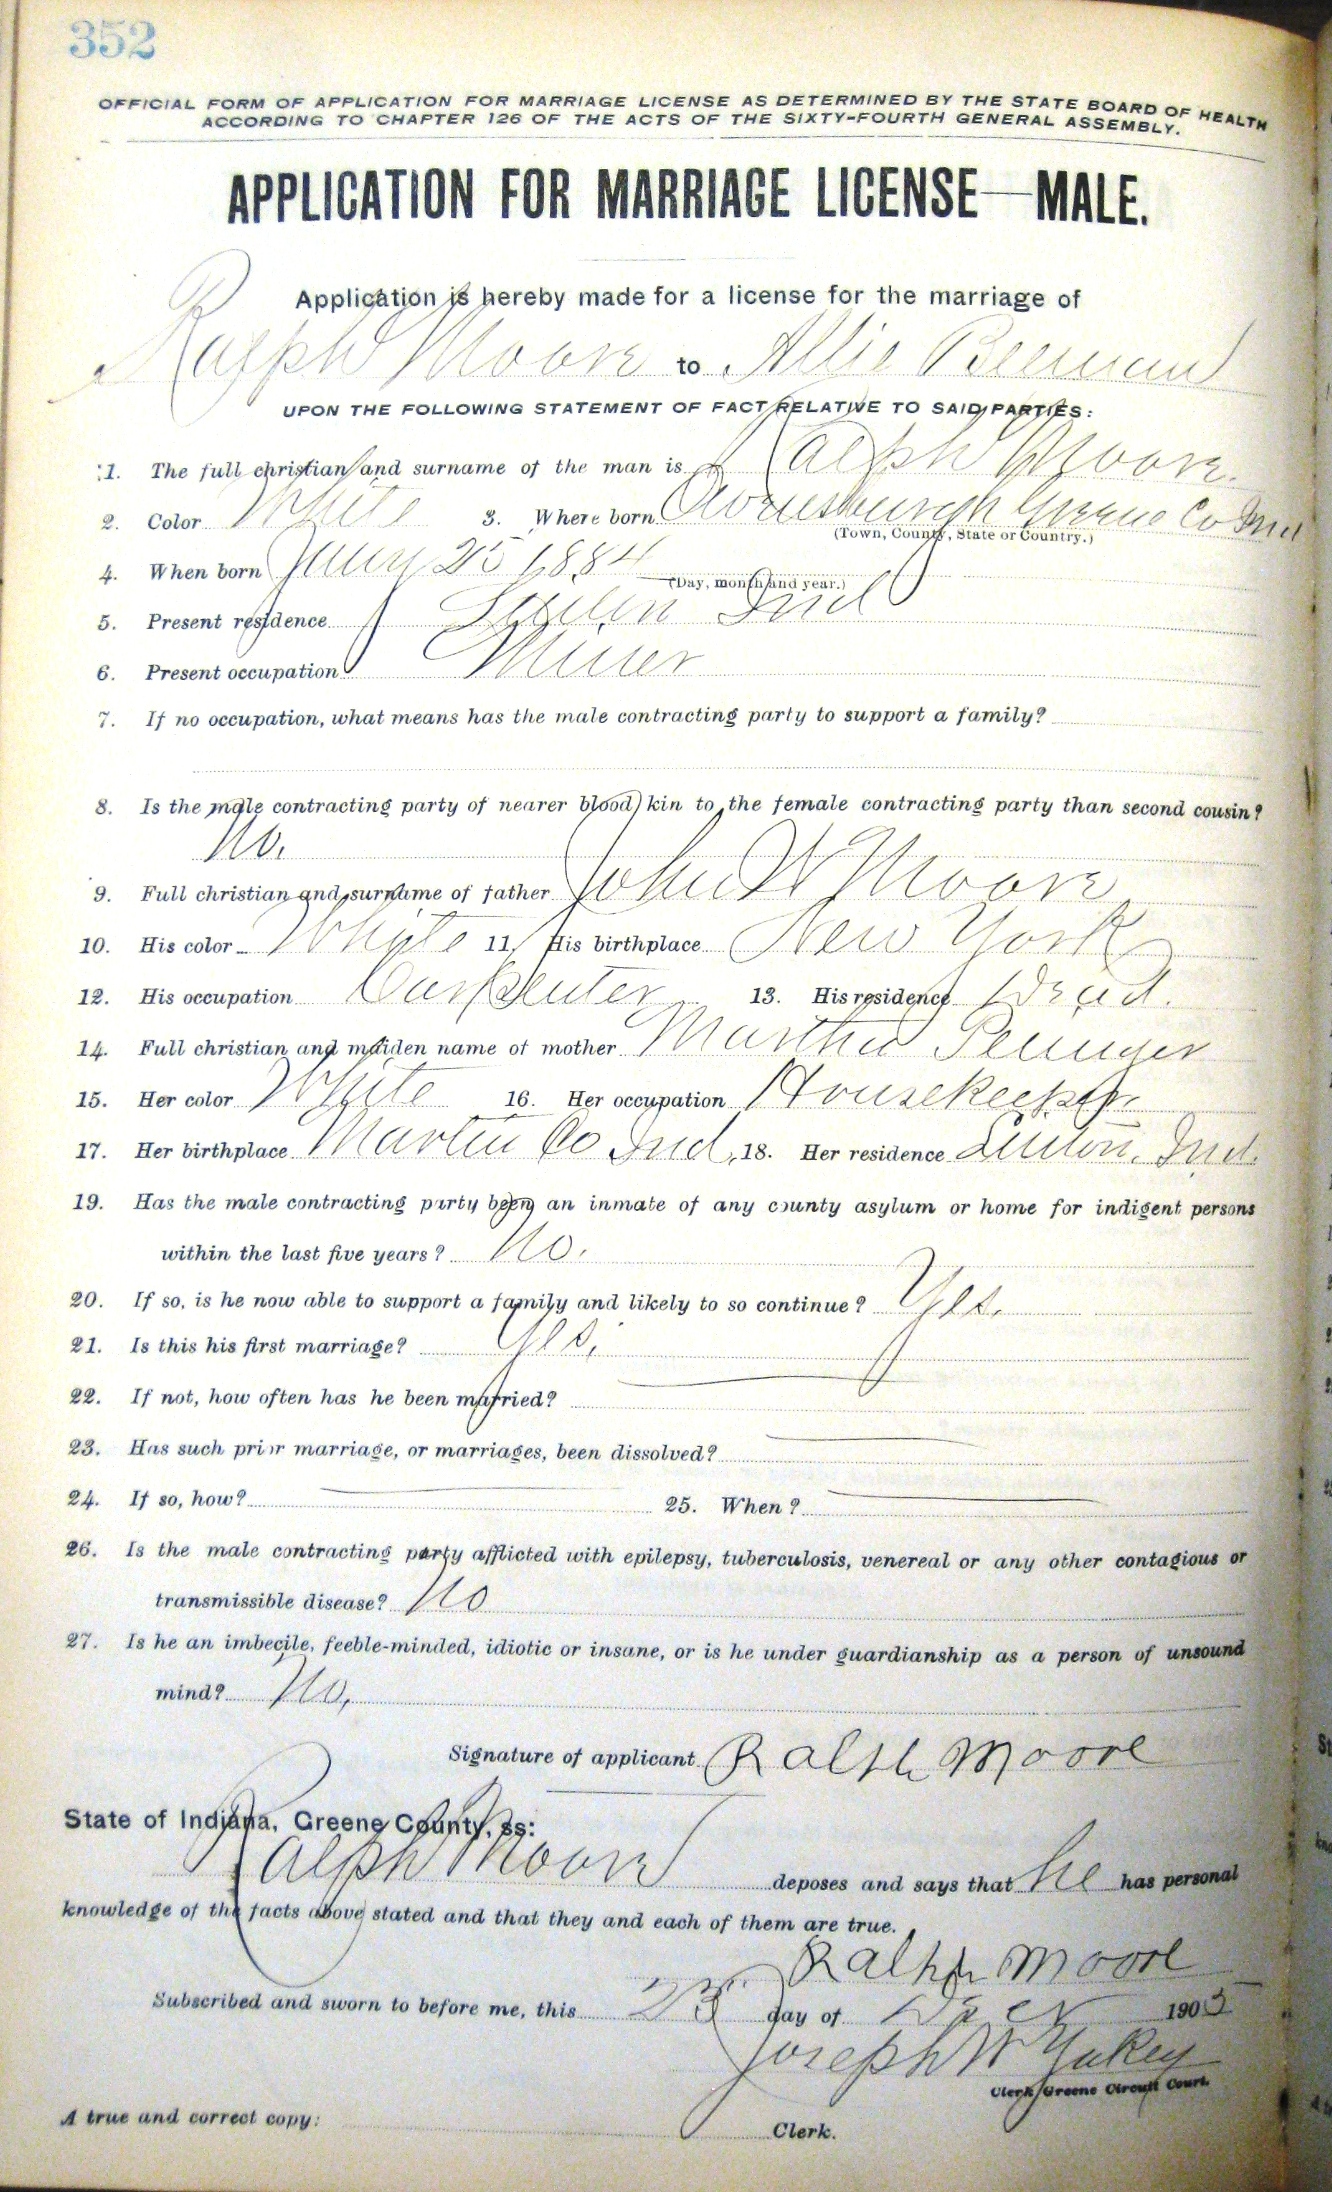 352
OFFICIAL FORM OF APPLICATION FOR MARRIAGE LICENSE AS DETERMINED BY THE STATE BOARD OF HEALTH
ACCORDING TO CHAPTER 126 OF THE ACTS OF THE SIXTY-FOURTH GENERAL ASSEMBLY.
APPLICATION FOR MARRIAGE LICENSE—MALE.
Application is hereby made for a license for the marriage of
Ralph Moore to Allie Beeman
UPON THE FOLLOWING STATEMENT OF FACT RELATIVE TO SAID PARTIES:
1. The full christian and surname of the man is Ralph Moore.
2. Color White 3. Where born Owensburgh Greene Co Ind
(Town, County, State or Country.)
4. When born 25 1884
(Day, month and year.)
5. Present residence Linton Ind
6. Present occupation Miner
7. If no occupation, what means has the male contracting party to support a family?
8. Is the male contracting party of nearer blood kin to the female contracting party than second cousin?
No.
9. Full christian and surname of father John W Moore
10. His color White 11. His birthplace New York
12. His occupation Carpenter 13. His residence Dead.
14. Full christian and maiden name of mother Martha
15. Her color White 16. Her occupation Housekeeper
17. Her birthplace Martin Co Ind. 18. Her residence Linton, Ind.
19. Has the male contracting party been an inmate of any county asylum or home for indigent persons
within the last five years? No.
20. If so, is he now able to support a family and likely to so continue? Yes.
21. Is this his first marriage? Yes.
22. If not, how often has he been married?
23. Has such prior marriage, or marriages, been dissolved?
24. If so, how? 25. When?
26. Is the male contracting party afflicted with epilepsy, tuberculosis, venereal or any other contagious or
transmissible disease? No
27. Is he an imbecile, feeble-minded, idiotic or insane, or is he under guardianship as a person of unsound
mind? No.
Signature of applicant Ralph Moore
State of Indiana, Greene County, ss:
Ralph Moore deposes and says that he has personal
knowledge of the facts above stated and that they and each of them are true.
Ralph Moore
Subscribed and sworn to before me, this 23 day of Dec 1905
Joseph W Yakey
Clerk Greene Circuit Court.
A true and correct copy: Clerk.